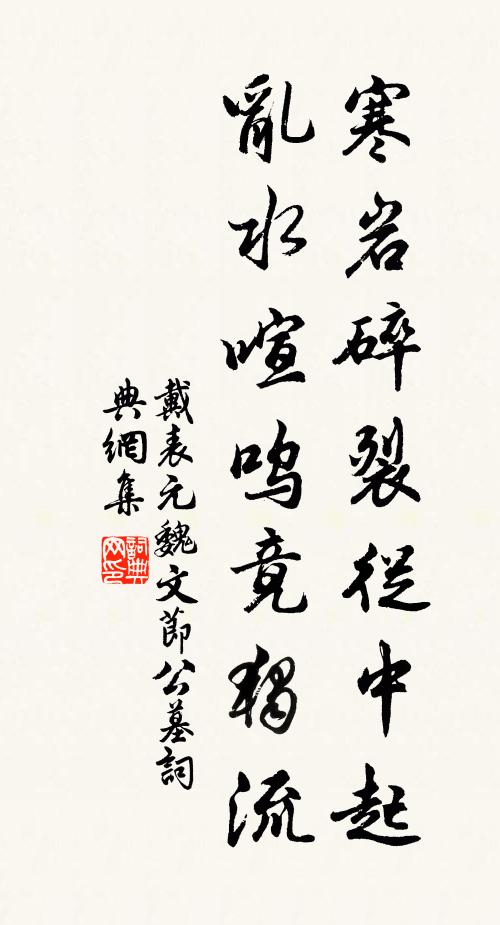 寒岩碎裂從中起
亂水喧鳴竟獨流
戴表元魏文節公墓詞
典網集
詞典網印